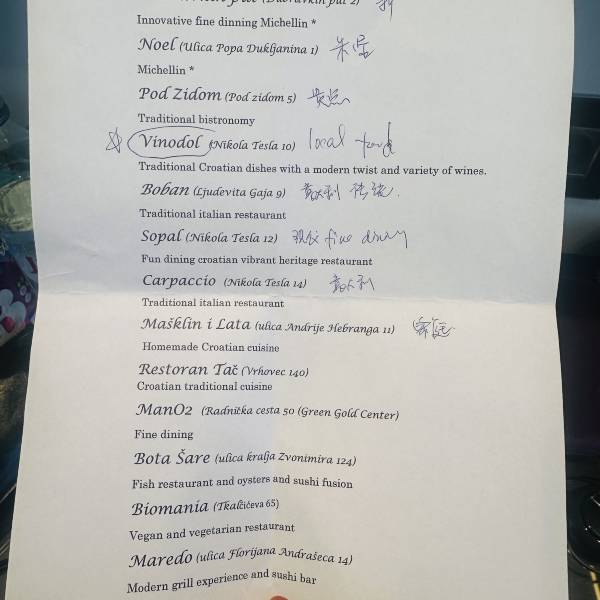 Innovative fine dinning Michellin *
Noel (Ulica Popa Dukljanina 1)
Michellin *
Pod Zidom (Pod zidom 5)
Traditional bistronomy
Vinodol (Nikola Tesla 10) local food
Traditional Croatian dishes with a modern twist and variety of wines.
Boban (Ljudevita Gaja 9) 意大利 传统.
Traditional italian restaurant
Sopal (Nikola Tesla 12) 现代 fine dining
Fun dining croatian vibrant heritage restaurant
Carpaccio (Nikola Tesla 14) 意大利
Traditional italian restaurant
Mašklin i Lata (ulica Andrije Hebranga 11) 家庭
Homemade Croatian cuisine
Restoran Tač (Vrhovec 140)
Croatian traditional cuisine
ManO2 (Radnička cesta 50 (Green Gold Center)
Fine dining
Bota Šare (ulica kralja Zvonimira 124)
Fish restaurant and oysters and sushi fusion
Biomania (Tkalčićeva 65)
Vegan and vegetarian restaurant
Maredo (ulica Florijana Andrašeca 14)
Modern grill experience and sushi bar